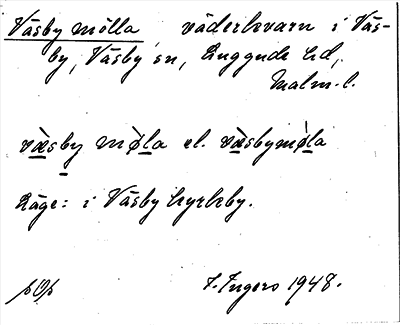 Väsby mölla, väderkvarn i Väs-
by, Väsby sn, Luggude hd,
Malm. l.
væsby møla el. væsbymøla
Läge: i Väsby kyrkby.
I. Ingers 1948.